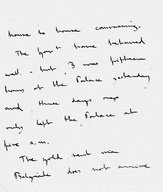 house to house canvassing.
The good home behaved
well. but 3 was fifteen
hours at the Palace yesterday
and three days ago
only left the Palace at
five a.m.
The gold sent via
Belgrade does not arrive